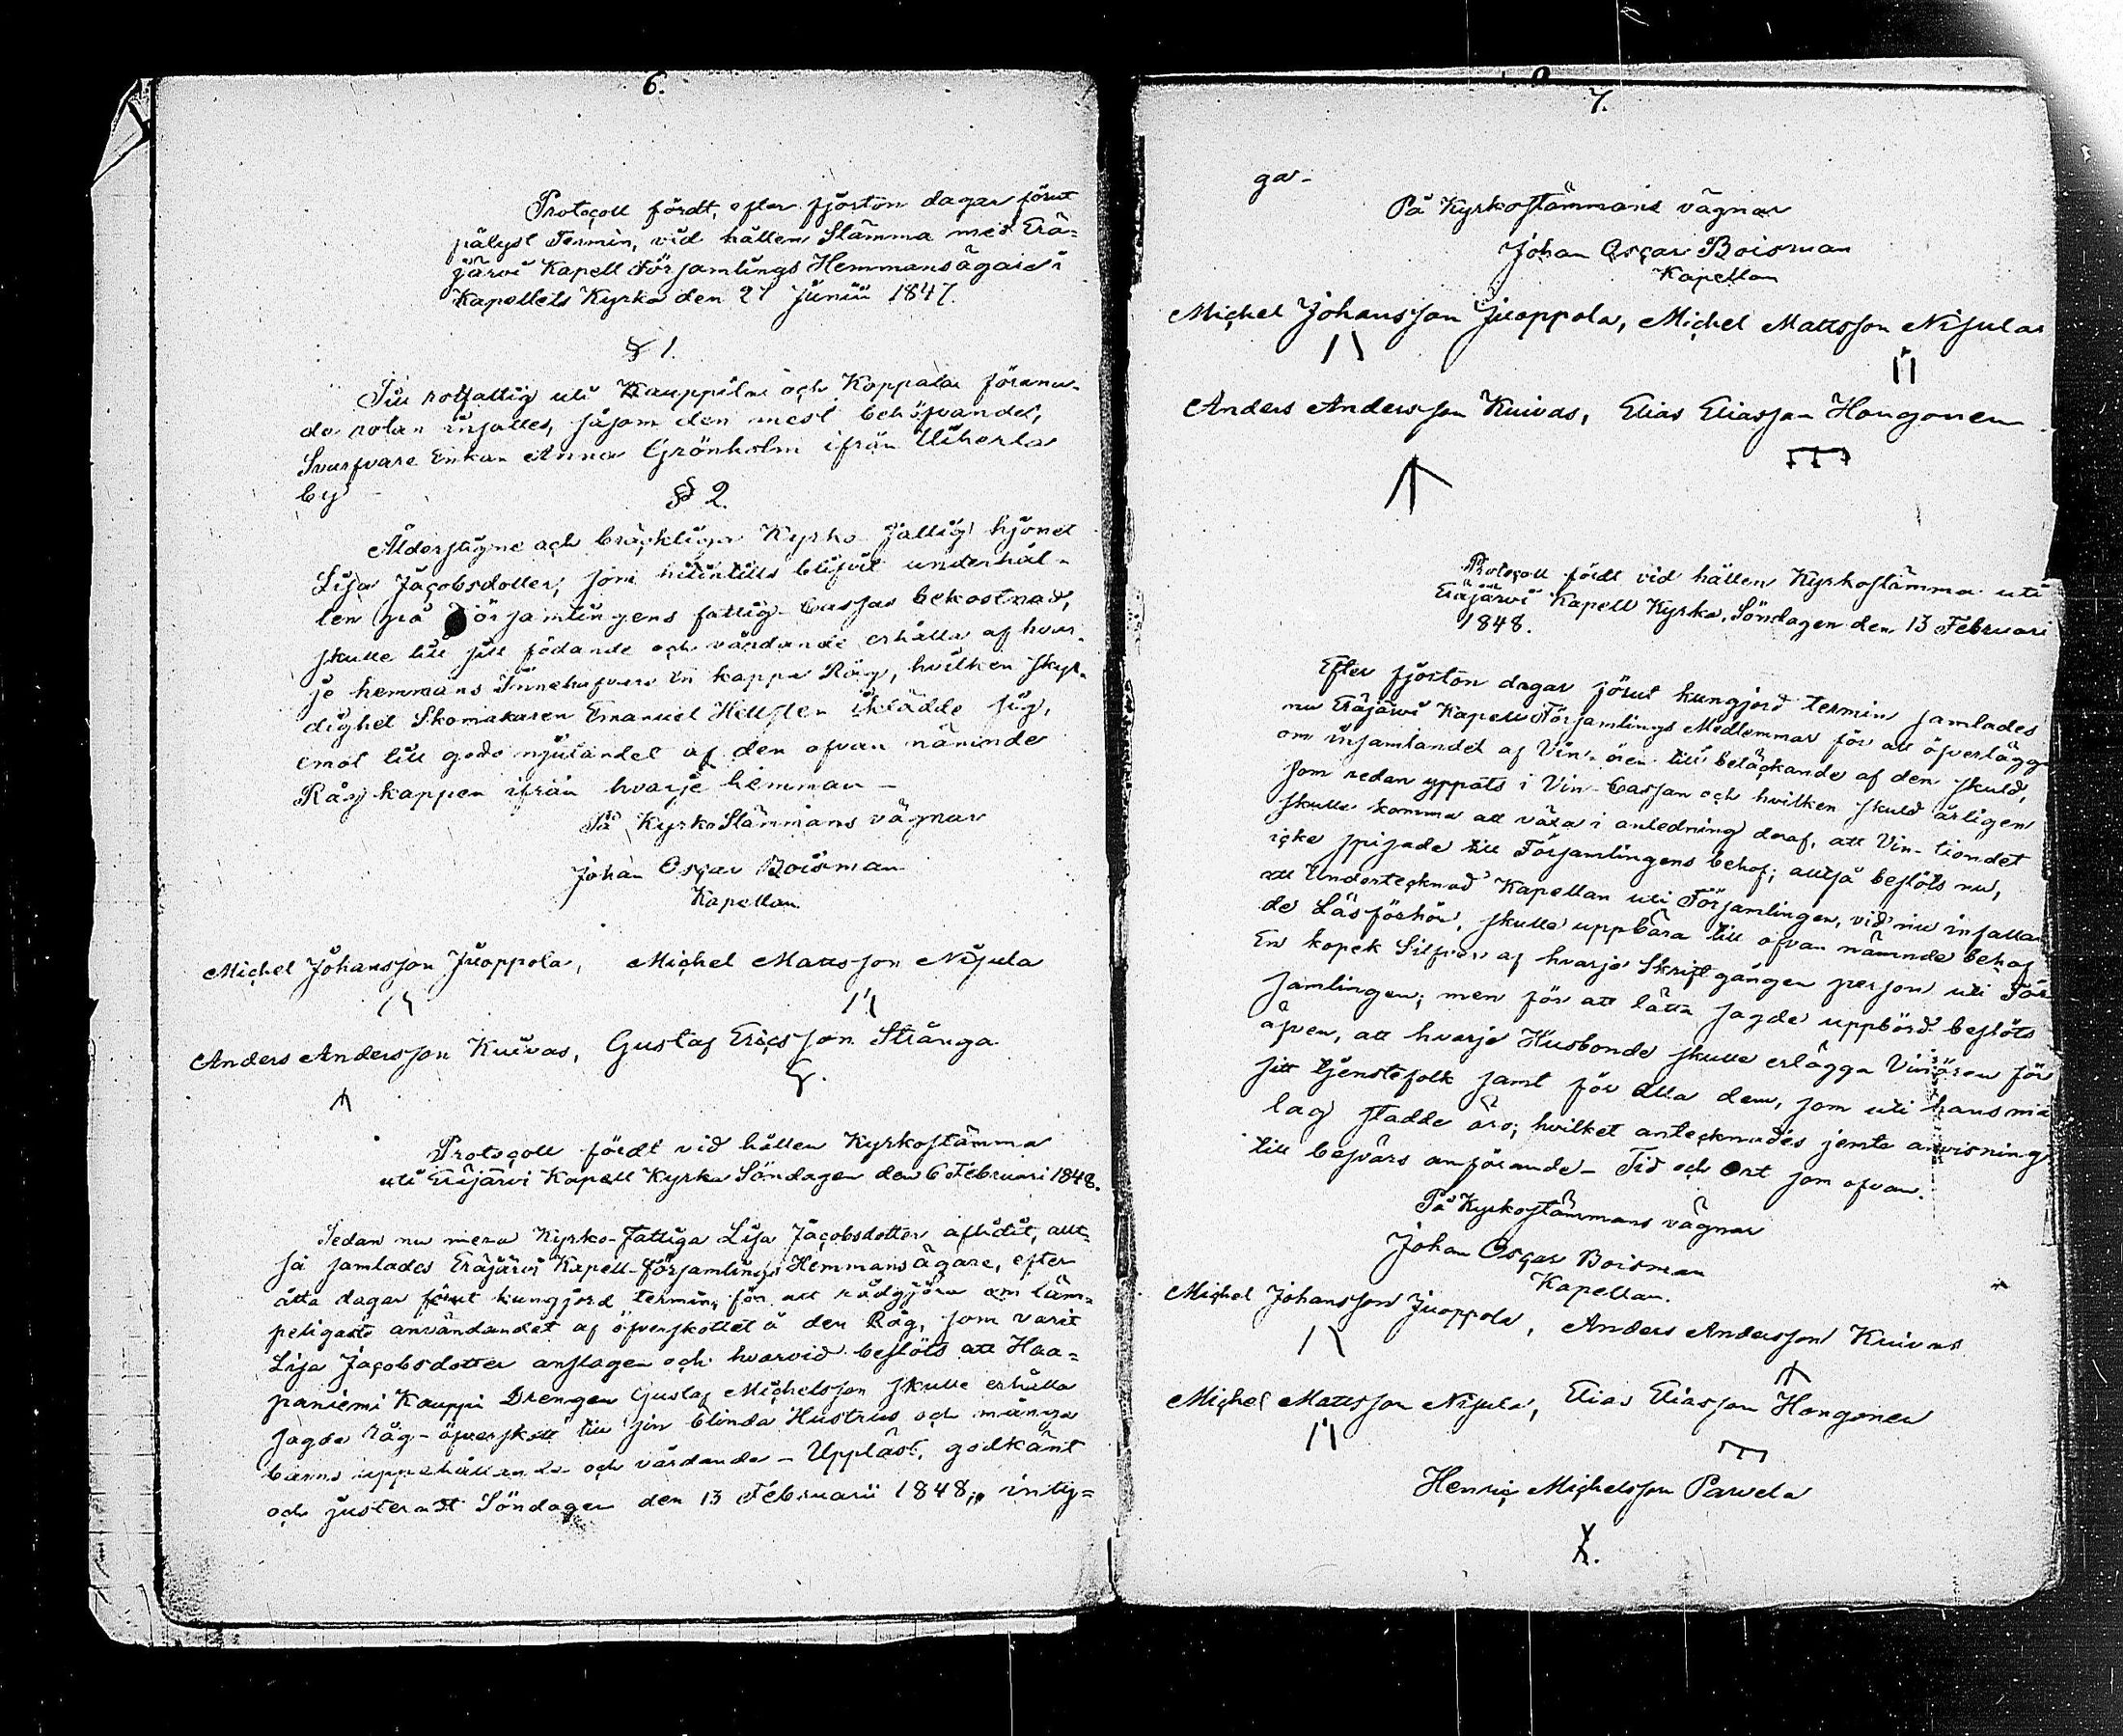 6.
Protocoll fördt, efter fjorton dagar förut
pålyst Termin, vid hållen Stämma med Erä-
järvi Kapell Församlings Hemmansägare i
Kapellets Kyrka den 27 Junii 1847.
§ 1.
Till rotfattig uti Kauppila och Koppala förena-
de rotar insattes, såsom den mest behöfvande,
Svarfvare Enkan Anna Grönholm ifrån Uiherla
by
§ 2.
Ålderstigne och bräckliga Kyrko fattig hjonet
Lisa Jacobsdotter, som hitintills blifvit underhål-
len på Församlingens fattig-Cassas bekostnad,
skulle till sitt födande och vårdande erhålla af hvar-
je hemmans Innehafvare en kappa Råg, hvilken skyl-
dighet Skomakaren Emanuel Hellsten iklädde sig,
emot till godo njutandet af den ofvan nämnde
Råg kappen ifrån hvarje hemman -
På KyrkoStämmans vägnar
Johan Oscar Boisman
Kapellan.
Michel Johansson Juoppola, Michel Mattsson Nisula
Anders Andersson Kuivas, Gustaf Ericsson Stränga
Protocoll fördt vid hållen Kyrkostämma
uti Eräjärvi Kapell Kyrka Söndagen den 6 Februari 1848.
Sedan nu mera Kyrko-Fattiga Lisa Jacobsdotter aflidit, allt-
så samlades Eräjärvi Kapell-församlings Hemmansägare, efter
åtta dagar förut kungjord termin, för att rådgjöra om läm-
peligaste användandet af öfverskottet å den Råg, som varit
Lisa Jacobsdotter anslagen och hvarvid beslöts att Haa-
paniemi Kauppi Drengen Gustaf Michelsson skulle erhålla
sagde Råg-öfverskott till sin blinda Hustrus och många
barns uppehållande och vårdande - Uppläst, godkänt
och justeradt Söndagen den 13 Februarii 1848, intyg-
7.
ga-
På Kyrkostämmans vägnar
Johan Oscar Boisman
Kapellan
Michel Johansson Juoppola, Michel Mattsson Nisula
Anders Andersson Kuivas, Elias Eliasson Hongonen
Protocoll fördt vid hållen Kyrkostämma uti
Eräjärvi Kapell Kyrka, Söndagen den 13 Februari
1848.
Efter fjorton dagar förut kungjord termin samlades
nu Eräjärvi Kapell Församlings Medlemmar för att öfverlägga
om insamlandet af Vin-ören till betäckande af den skuld,
som redan uppstått i Vin-Cassan och hvilken skuld årligen
skulle komma att växa i anledning deraf, att Vin-tiondet
icke spisade till Församlingens behof; alltså beslöts nu,
att Undertecknad Kapellan uti Församlingen, vid nu infallan
de Läsförhör, skulle uppbära till ofvan nämnde behof
En kopek Silfver af hvarje Skriftgången person uti För
samlingen; men för att lätta sagde uppbörd beslöts
äfven, att hvarje Husbonde skulle erlägga Vinören för
sitt tjenstefolk samt för alla dem, som uti hans ma
lag stadde äro; hvilket antecknades jemte anvisning
till besvärs anförande - Tid och Ort som ofvan.
På Kyrkostämmans vägnar
Johan Oscar Boisman
Kapellan.
Michel Johansson Juoppola, Anders Andersson Kuivas
Michel Mattsson Nisula, Elias Eliasson Hongonen
Henric Michelsson Parvela